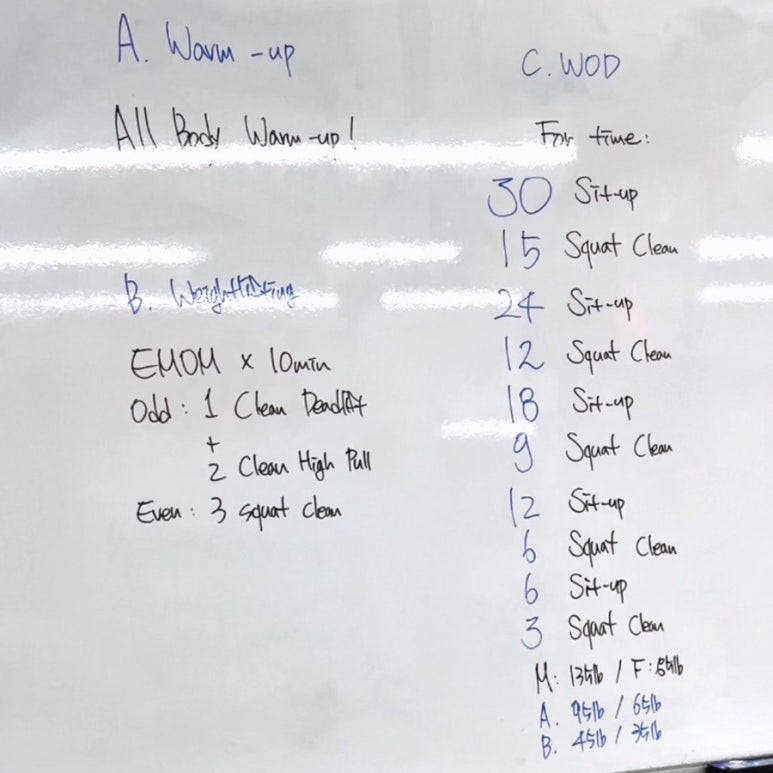 A. Warm-up
All Body Warm-up!
B. Weightlifting
EMOM x 10min
Odd: 1 Clean Deadlift
+
2 Clean High Pull
Even: 3 squat clean
C. WOD
For time:
30 Sit-up
15 Squat Clean
24 Sit-up
12 Squat Clean
18 Sit-up
9 Squat Clean
12 Sit-up
6 Squat Clean
6 Sit-up
3 Squat Clean
M: 135lb / F:
A. 95lb / 65lb
B. 45lb / 35lb